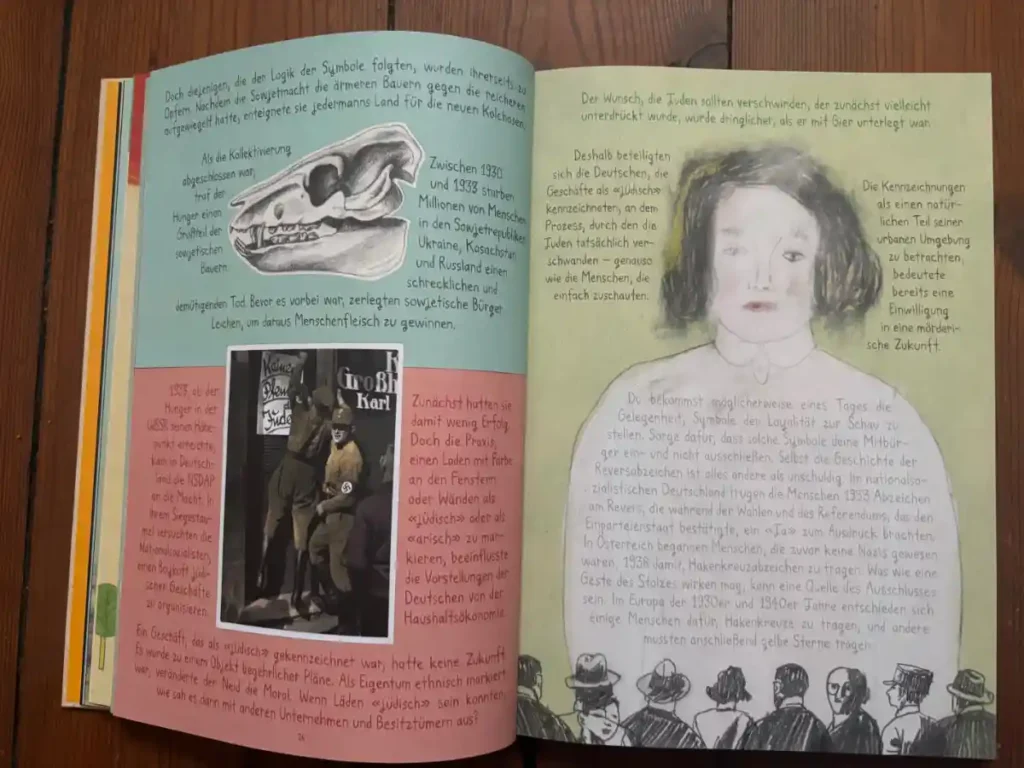 Doch diejenigen, die der Logik der Symbole folgten, wurden ihrerseits zu
Opfern. Nachdem die Sowjetmacht die ärmeren Bauern gegen die reicheren
aufgewiegelt hatte, enteignete sie jedermanns Land für die neuen Kolchosen.
Als die Kollektivierung
abgeschlossen war,
traf der
Hunger einen
Großteil der
sowjetischen
Bauern.
Zwischen 1930
und 1933 starben
Millionen von Menschen
in den Sowjetrepubliken
Ukraine, Kasachstan
und Russland einen
schrecklichen und
demütigenden Tod. Bevor es vorbei war, zerlegten sowjetische Bürger
Leichen, um daraus Menschenfleisch zu gewinnen.
1933, als der
Hunger in der
UdSSR seinen Höhe-
punkt erreichte,
kam in Deutsch-
land die NSDAP
an die Macht. In
ihrem Siegestau-
mel versuchten die
Nationalsozialisten,
einen Boykott jüdi-
scher Geschäfte
zu organisieren.
Keiner
Juden
K
Großh
Karl
Zunächst hatten sie
damit wenig Erfolg.
Doch die Praxis,
einen Laden mit Farbe
an den Fenstern
oder Wänden als
«jüdisch» oder als
«arisch» zu mar-
kieren, beeinflusste
die Vorstellungen der
Deutschen von der
Haushaltsökonomie.
Ein Geschäft, das als «jüdisch» gekennzeichnet war, hatte keine Zukunft.
Es wurde zu einem Objekt begehrlicher Pläne. Als Eigentum ethnisch markiert
war, veränderte der Neid die Moral. Wenn Läden «jüdisch» sein konnten,
wie sah es dann mit anderen Unternehmen und Besitztümern aus?
Der Wunsch, die Juden sollten verschwinden, der zunächst vielleicht
unterdrückt wurde, wurde dringlicher, als er mit Gier unterlegt war.
Deshalb beteiligten
sich die Deutschen, die
Geschäfte als «jüdisch»
kennzeichneten, an dem
Prozess, durch den die
Juden tatsächlich ver-
schwanden – genauso
wie die Menschen, die
einfach zuschauten.
Die Kennzeichnungen
als einen natür-
lichen Teil seiner
urbanen Umgebung
zu betrachten,
bedeutete
bereits eine
Einwilligung
in eine mörderi-
sche Zukunft.
Du bekommst möglicherweise eines Tages die
Gelegenheit, Symbole der Loyalität zur Schau zu
stellen. Sorge dafür, dass solche Symbole deine Mitbür-
ger ein- und nicht ausschließen. Selbst die Geschichte der
Reversabzeichen ist alles andere als unschuldig. Im nationalso-
zialistischen Deutschland trugen die Menschen 1933 Abzeichen
am Revers, die während der Wahlen und des Referendums, das den
Einparteienstaat bestätigte, ein «Ja» zum Ausdruck brachten.
In Österreich begannen Menschen, die zuvor keine Nazis gewesen
waren, 1938 damit, Hakenkreuzabzeichen zu tragen. Was wie eine
Geste des Stolzes wirken mag, kann eine Quelle des Ausschlusses
sein. Im Europa der 1930er und 1940er Jahre entschieden sich
einige Menschen dafür, Hakenkreuze zu tragen, und andere
mussten anschließend gelbe Sterne tragen.